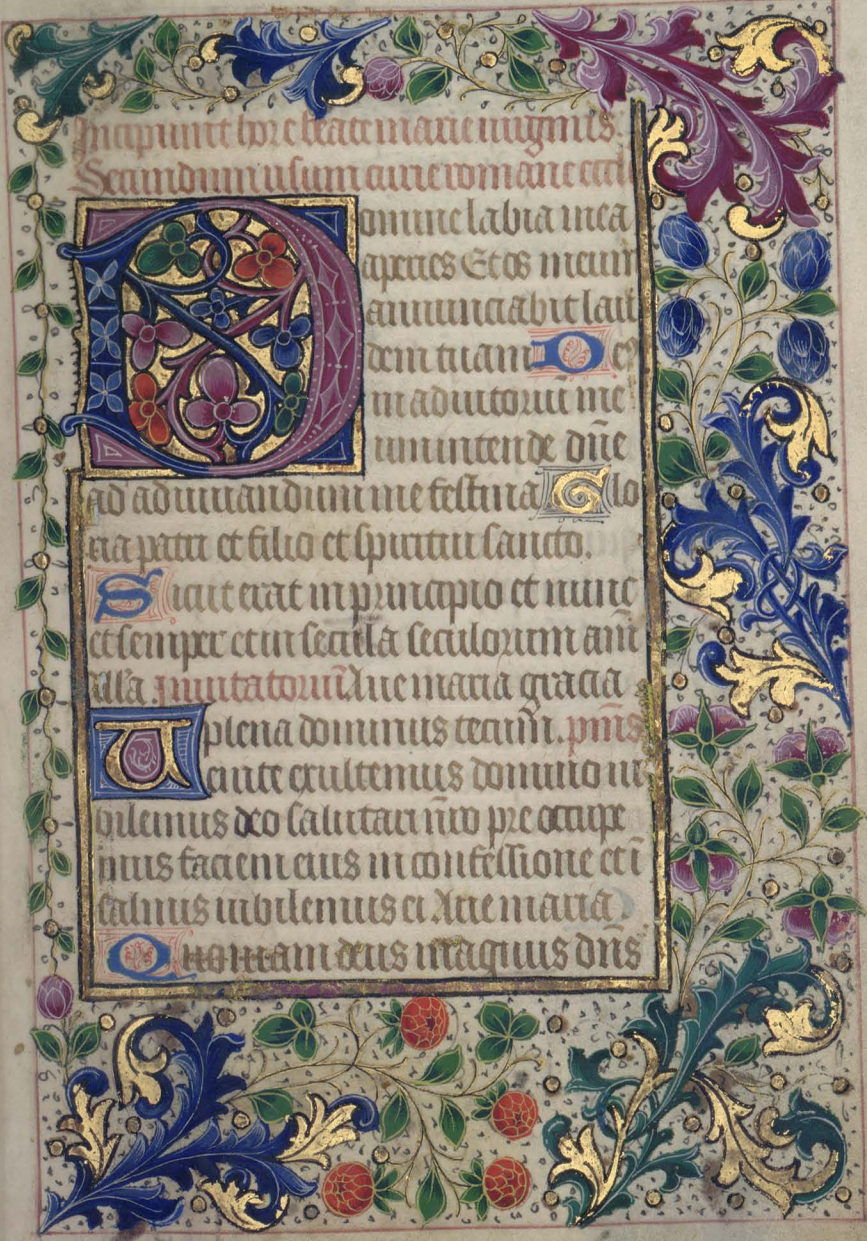 Incipiunt hore beate marie uirginis.
Secundum usum curie romane eccl
Domine labia mea
aperies Et os meum
annunciabit lau
dem tuam De
us in adiutoriū me
um intende dn̄e
ad adiuuandum me festina Glo
ria patri et filio et spiritui sancto.
Sicut erat in principio et nunc
et semper et in secula seculorum am̄
all'a. inuitatoriū Aue maria gracia
plena dominus tecum. pm̄s
Uenite exultemus domino iu
bilemus deo salutari n̄ro preoccupe
mus faciem eius in confessione et ī
salmis iubilemus ei Aue maria
Quoniam deus magnus dn̄s